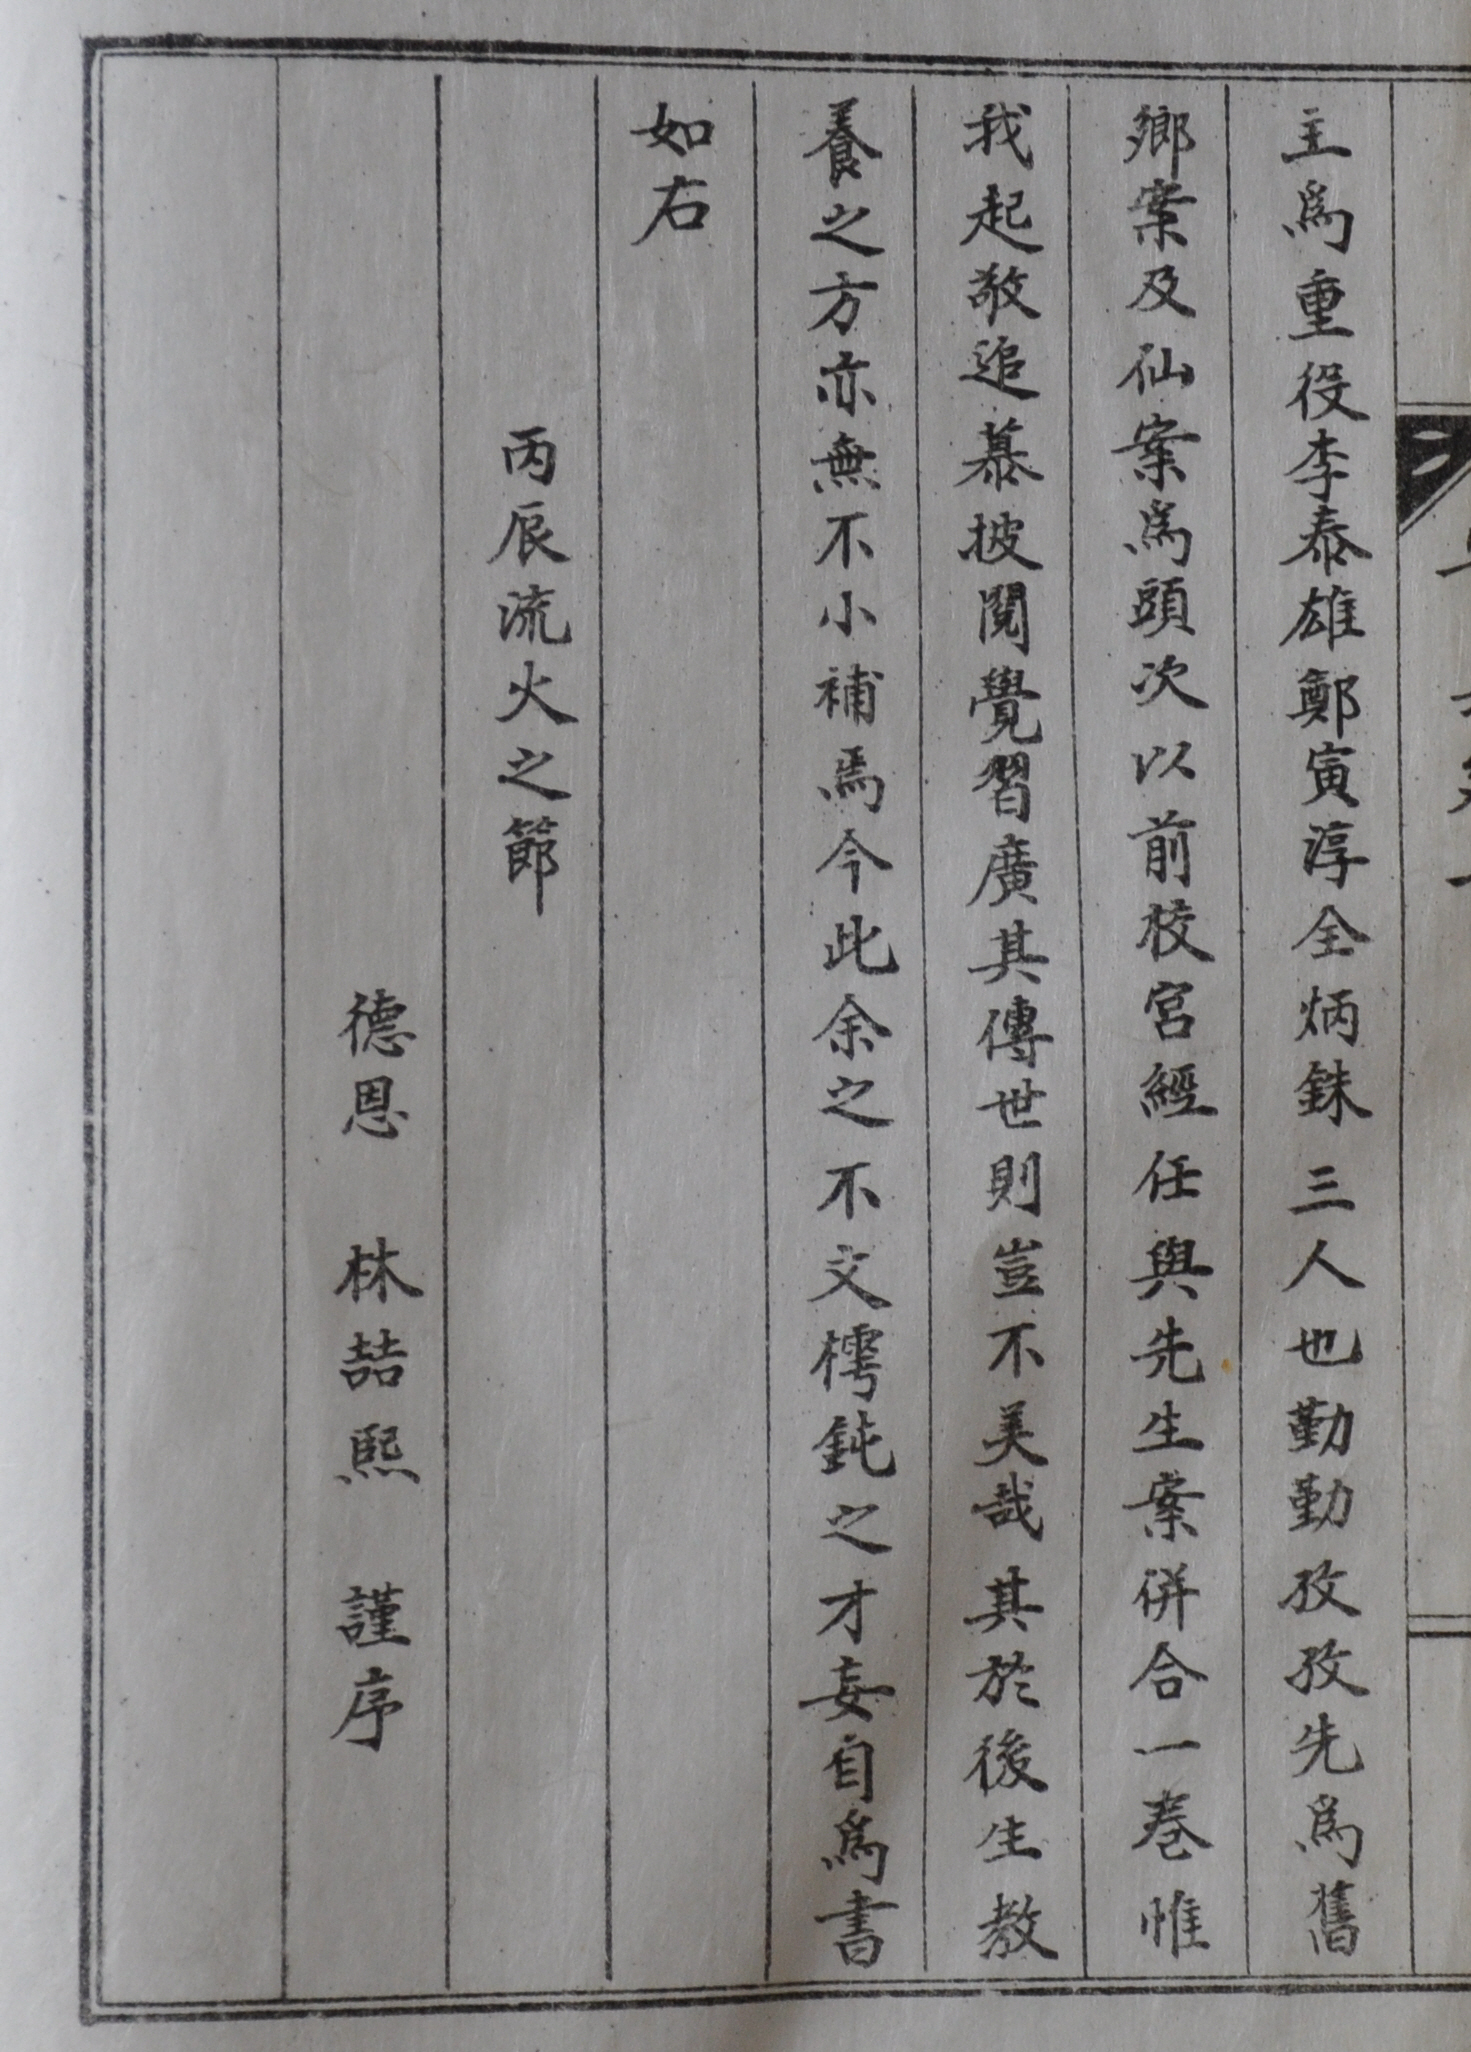 主爲重役李泰雄鄭寅淳全炳銖三人也勤勤孜孜先爲舊
鄕案及仙案爲頭次以前校宮經任與先生案倂合一卷惟
我起敬追慕披閱覺習廣其傳世則豈不美哉其於後生教
養之方亦無不小補焉今此余之不文樗鈍之才妄自爲書
如右
丙辰流火之節
德恩 林喆熙 謹序